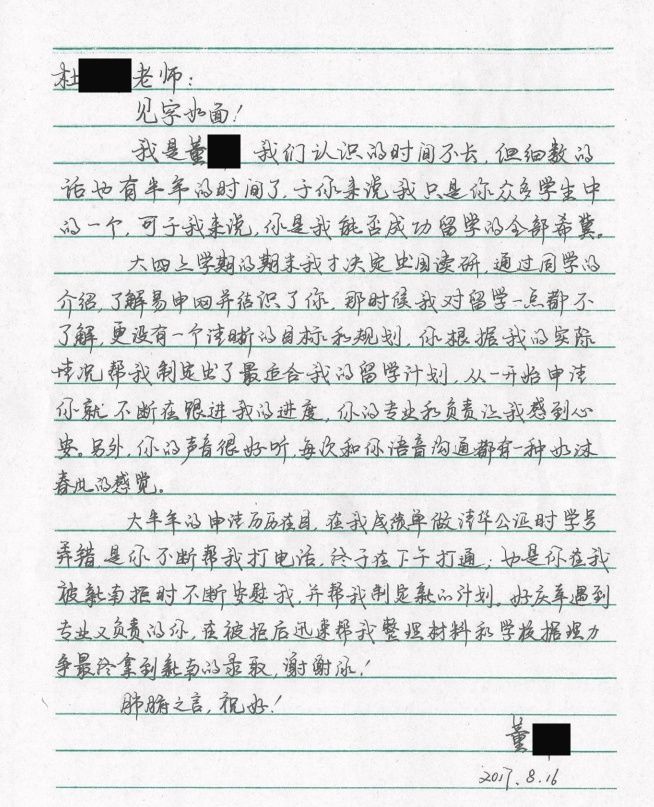 杜 老师：
见字如面！
我是董 我们认识的时间不长，但细数的
话也有半年的时间了，于你来说我只是你众多学生中
的一个，可于我来说，你是我能否成功留学的全部希冀。
大四上学期的期末我才决定出国读研，通过同学的
介绍，了解易申网并结识了你，那时候我对留学一点都不
了解，更没有一个清晰的目标和规划，你根据我的实际
情况帮我制定出了最适合我的留学计划，从一开始申请
你就不断在跟进我的进度，你的专业和负责让我感到心
安。另外，你的声音很好听，每次和你语音沟通都有一种如沐
春风的感觉。
大半年的申请历历在目，在我成绩单做清华公证时学号
弄错是你不断帮我打电话，终于在下午打通；也是你在我
被新南拒时不断安慰我，并帮我制定新的计划。好庆幸遇到
专业又负责的你，在被拒后迅速帮我整理材料和学校据理力
争最终拿到新南的录取，谢谢你！
肺腑之言，祝好！
董
2017.8.16